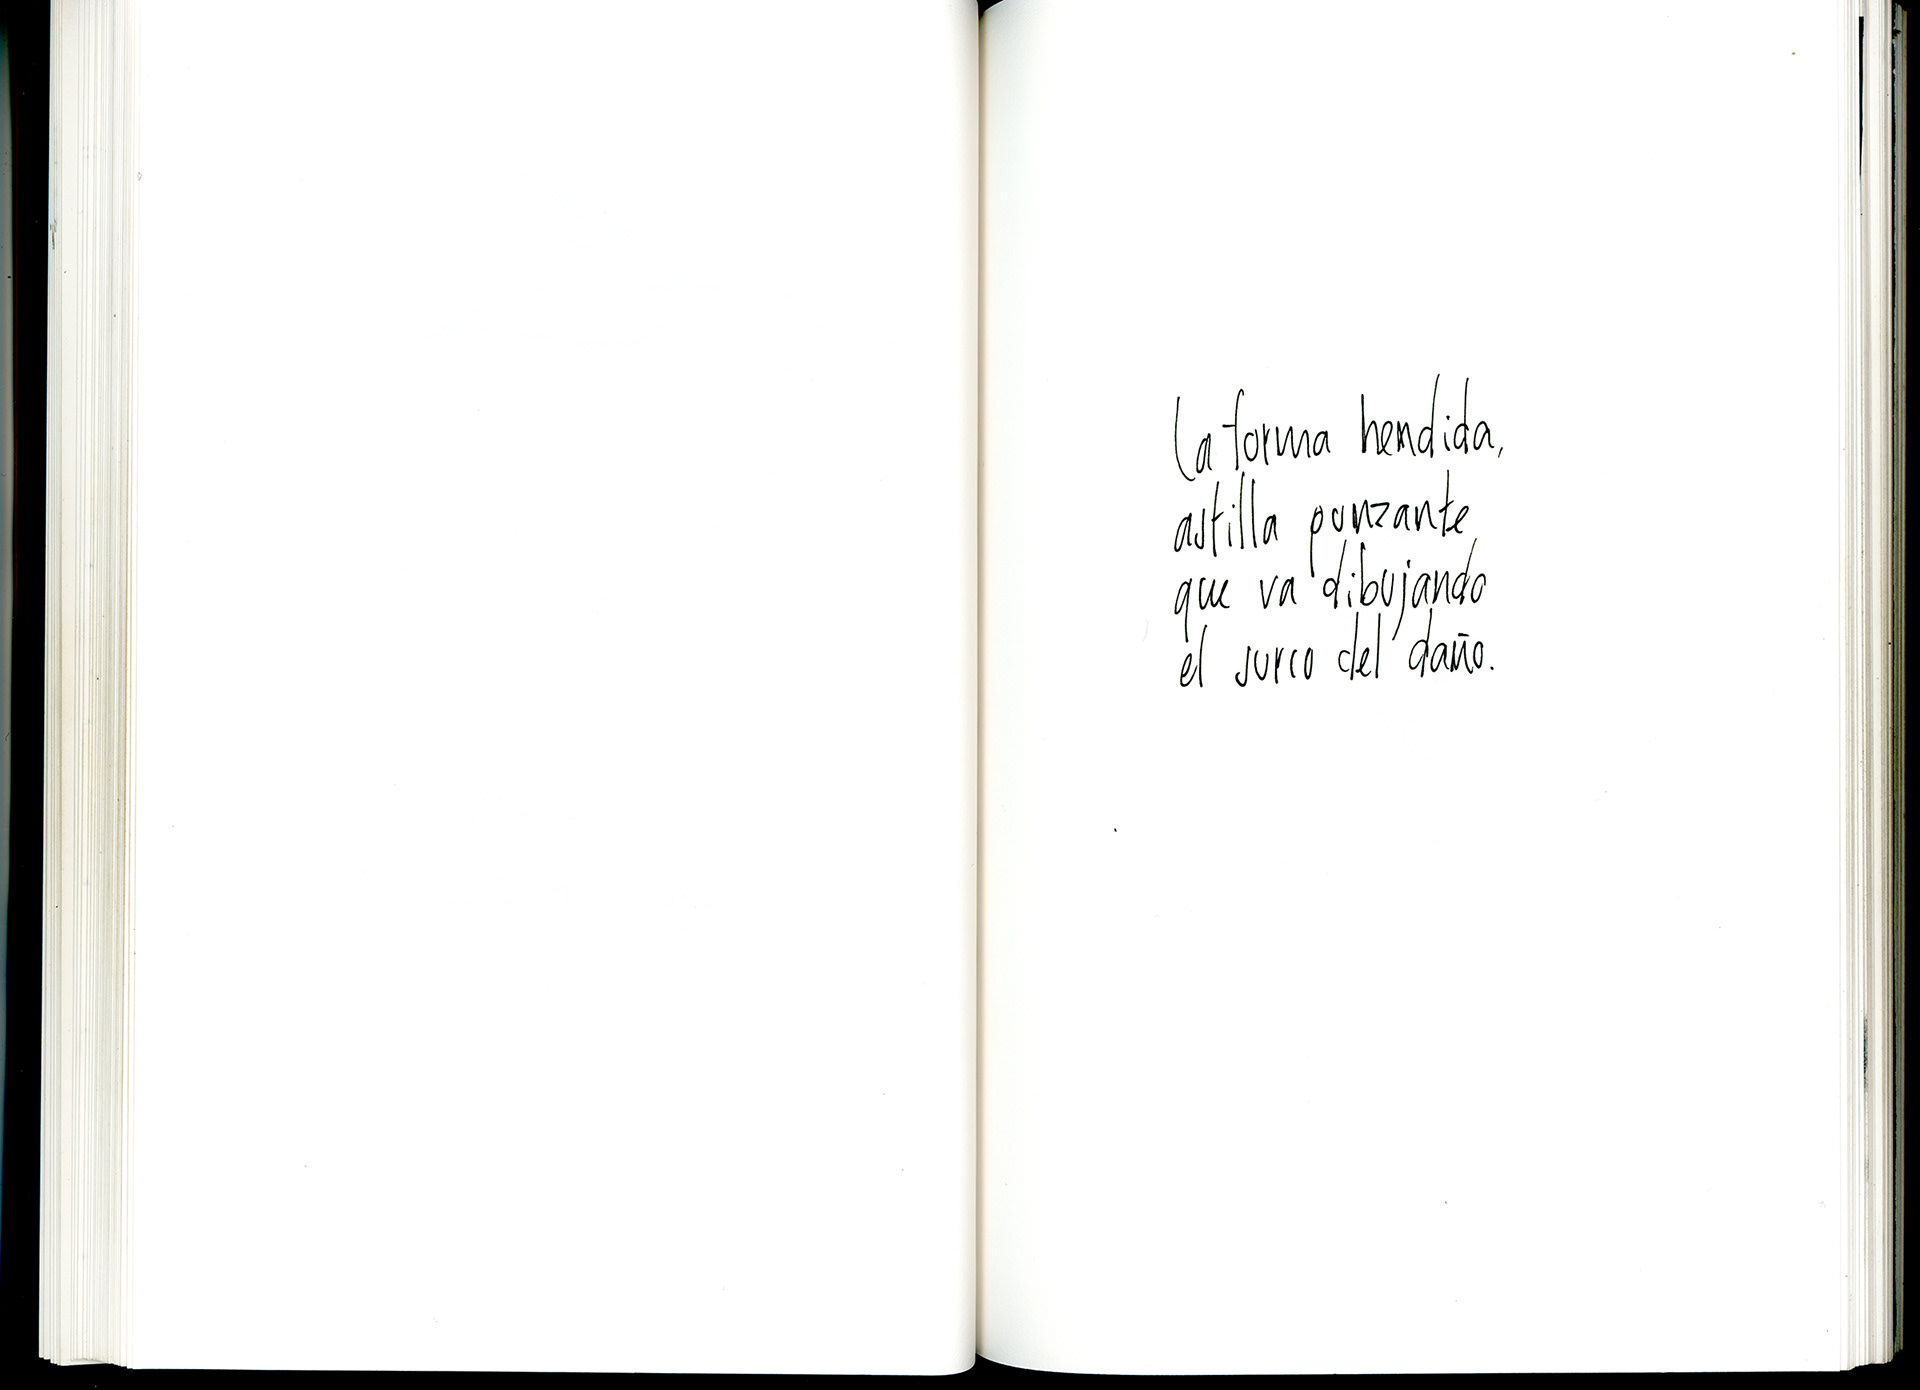 La forma hendida,
astilla punzante
que va dibujando
el surco del daño.